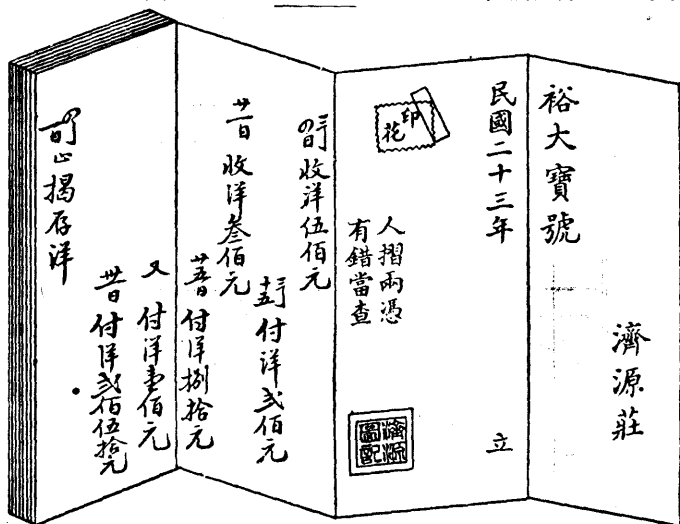 裕大寶號
濟源莊
民國二十三年
立
印花
人摺兩憑
有錯當查
濟源圖記
收洋伍佰元
付洋弍佰元
廿一日 收洋叁佰元
廿五日 付洋捌拾元
又 付洋壹佰元
付洋弍佰伍拾元
止揭存洋